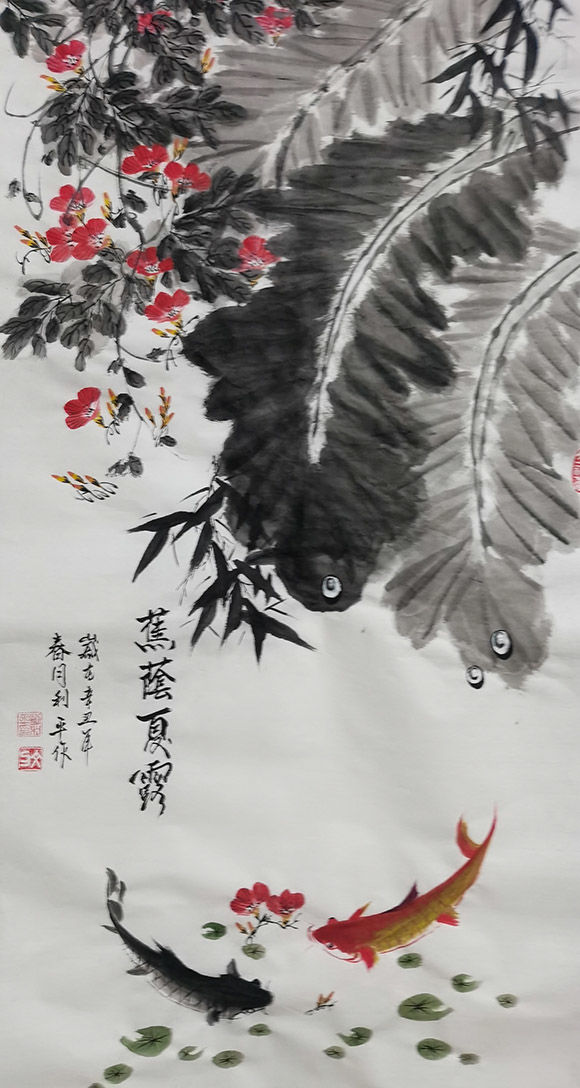 蕉蔭夏露
歲在辛丑年
春月利平作